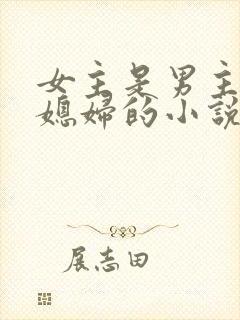 女主是男主
媳婦的小說
展志田